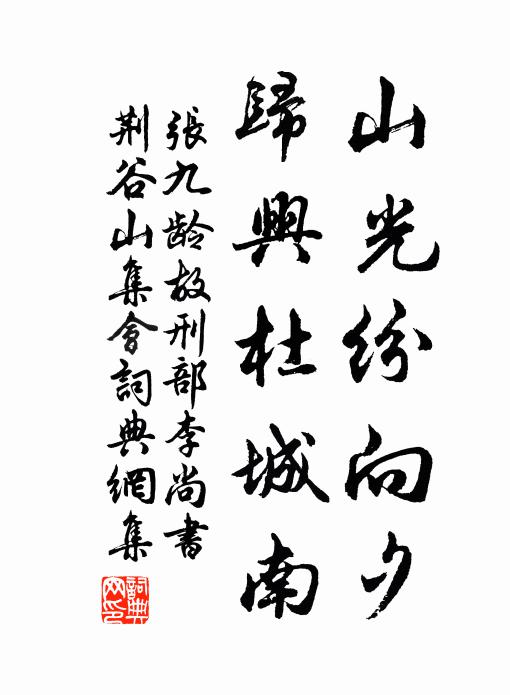 山光紛向夕
歸興杜城南
張九齡故刑部李尚書
荆谷山集會詞典網集
詞典网印